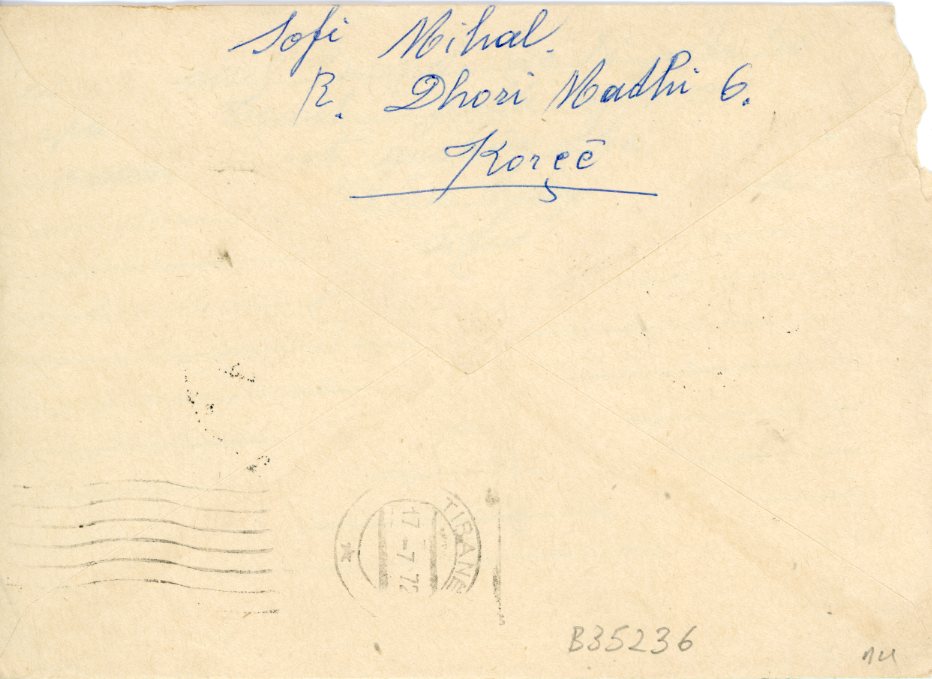 Sofi Mihal.
R. Dhori Madhi 6.
Korçë
TIRANE
17-7 72
B35236